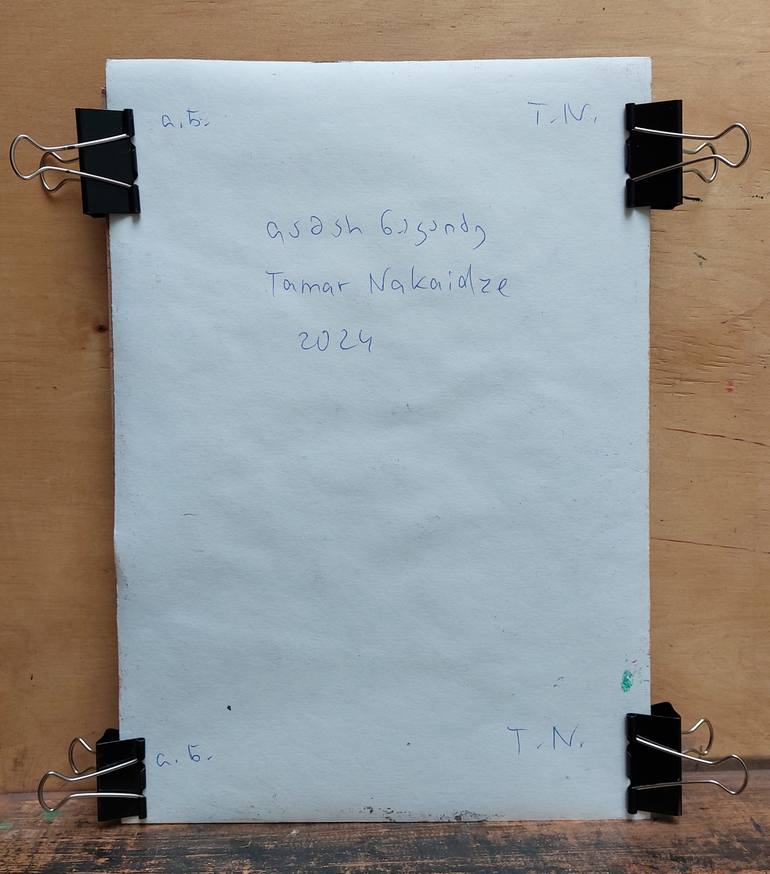 თ.ნ. T.N.
თამარ ნაკაიძე
Tamar Nakaidze
2024
თ.ნ. T.N.